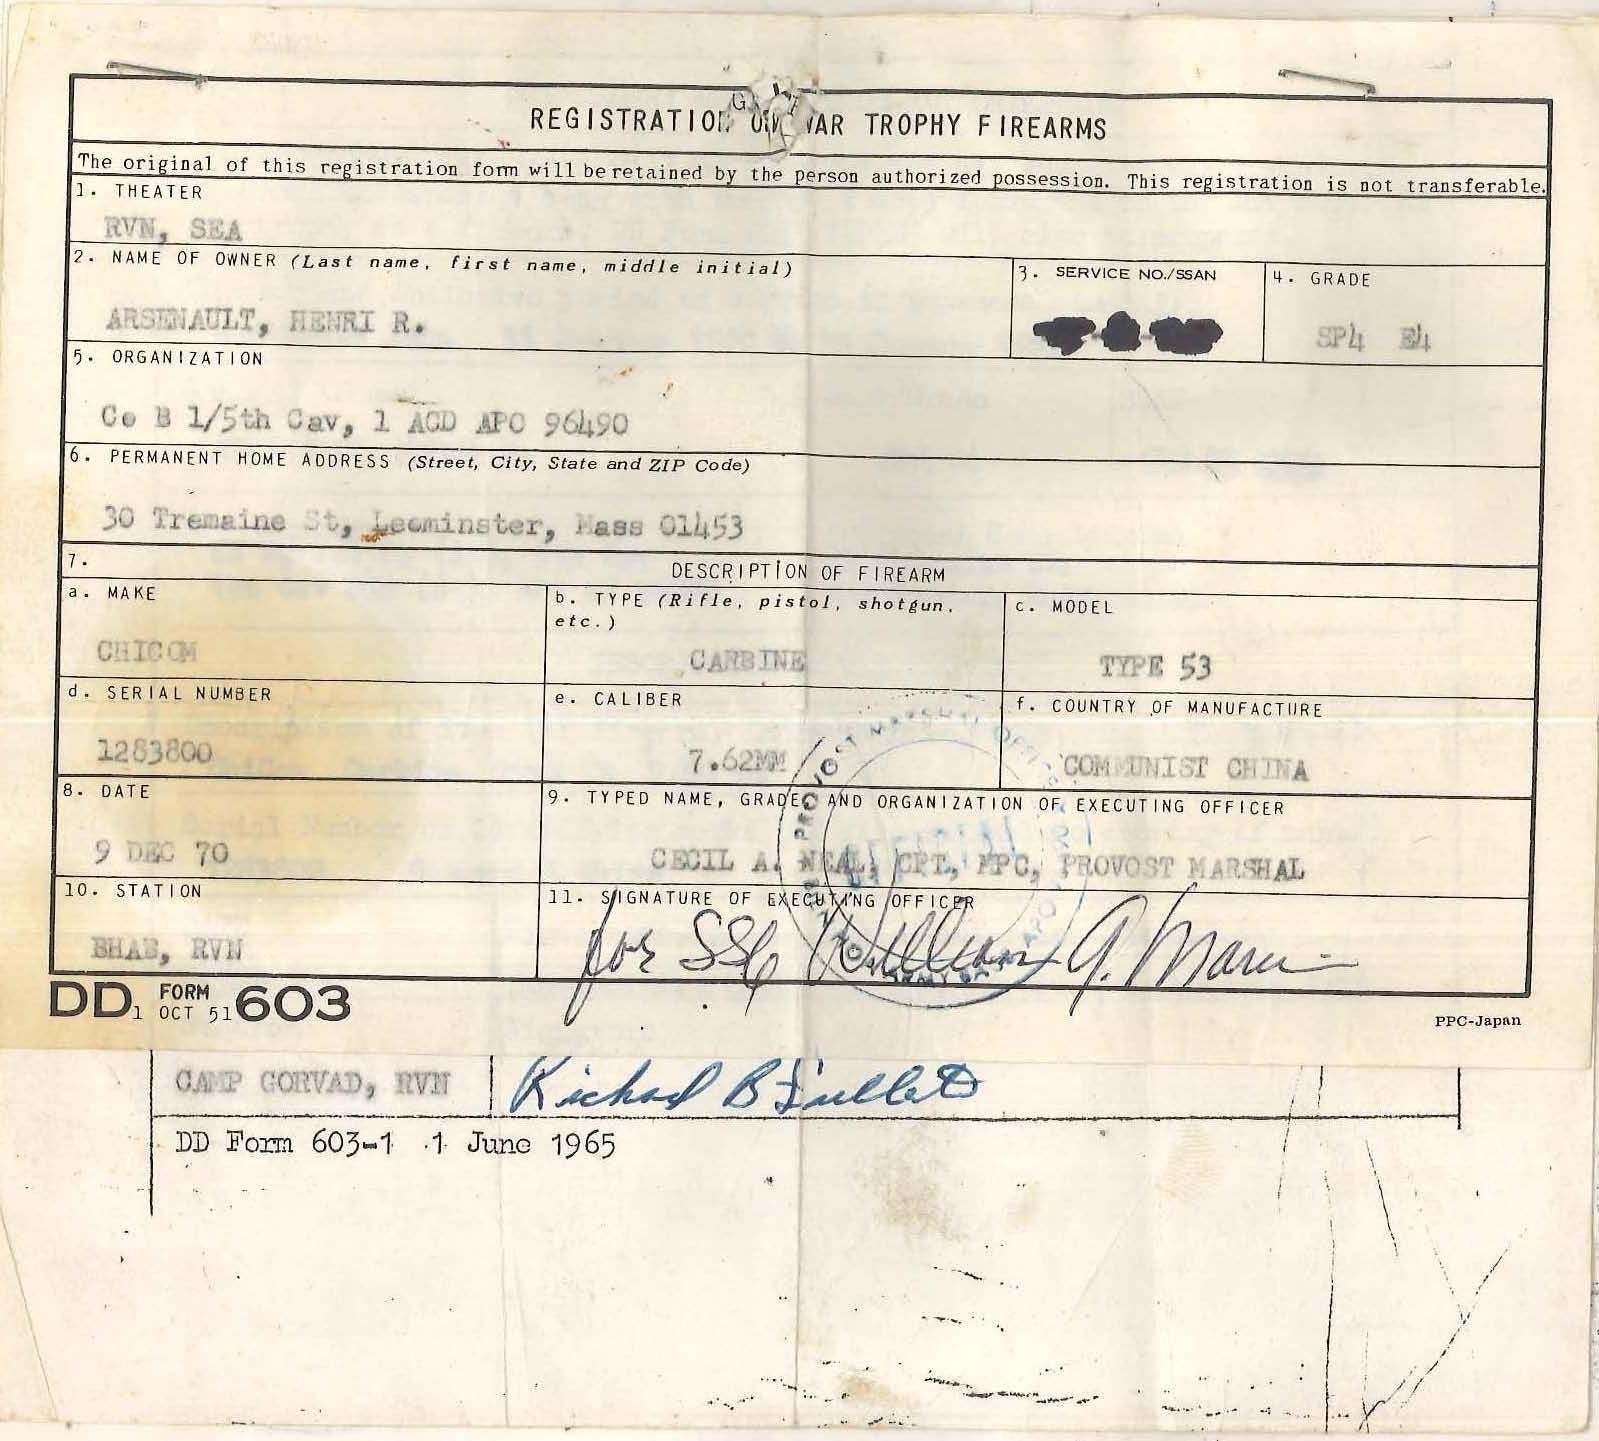 REGISTRATION OF WAR TROPHY FIREARMS
The original of this registration form will be retained by the person authorized possession. This registration is not transferable.
1. THEATER
RVN, SEA
2. NAME OF OWNER (Last name, first name, middle initial)
3. SERVICE NO./SSAN
4. GRADE
ARSENAULT, HENRI R.
SP4 E4
5. ORGANIZATION
Co B 1/5th Cav, 1 ACD APO 96490
6. PERMANENT HOME ADDRESS (Street, City, State and ZIP Code)
30 Tremaine St, Leominster, Mass 01453
7. DESCRIPTION OF FIREARM
a. MAKE
b. TYPE (Rifle, pistol, shotgun, etc.)
c. MODEL
CHICOM
CARBINE
TYPE 53
d. SERIAL NUMBER
e. CALIBER
f. COUNTRY OF MANUFACTURE
1283800
7.62MM
COMMUNIST CHINA
8. DATE
9. TYPED NAME, GRADE, AND ORGANIZATION OF EXECUTING OFFICER
9 DEC 70
CECIL A. NEAL, CPT, MPC, PROVOST MARSHAL
10. STATION
11. SIGNATURE OF EXECUTING OFFICER
BHAB, RVN
for SSG William A.
PROVOST MARSHAL OFFICE
DD 1 FORM OCT 51 603
PPC-Japan
CAMP GORVAD, RVN
Richard B
DD Form 603-1 1 June 1965